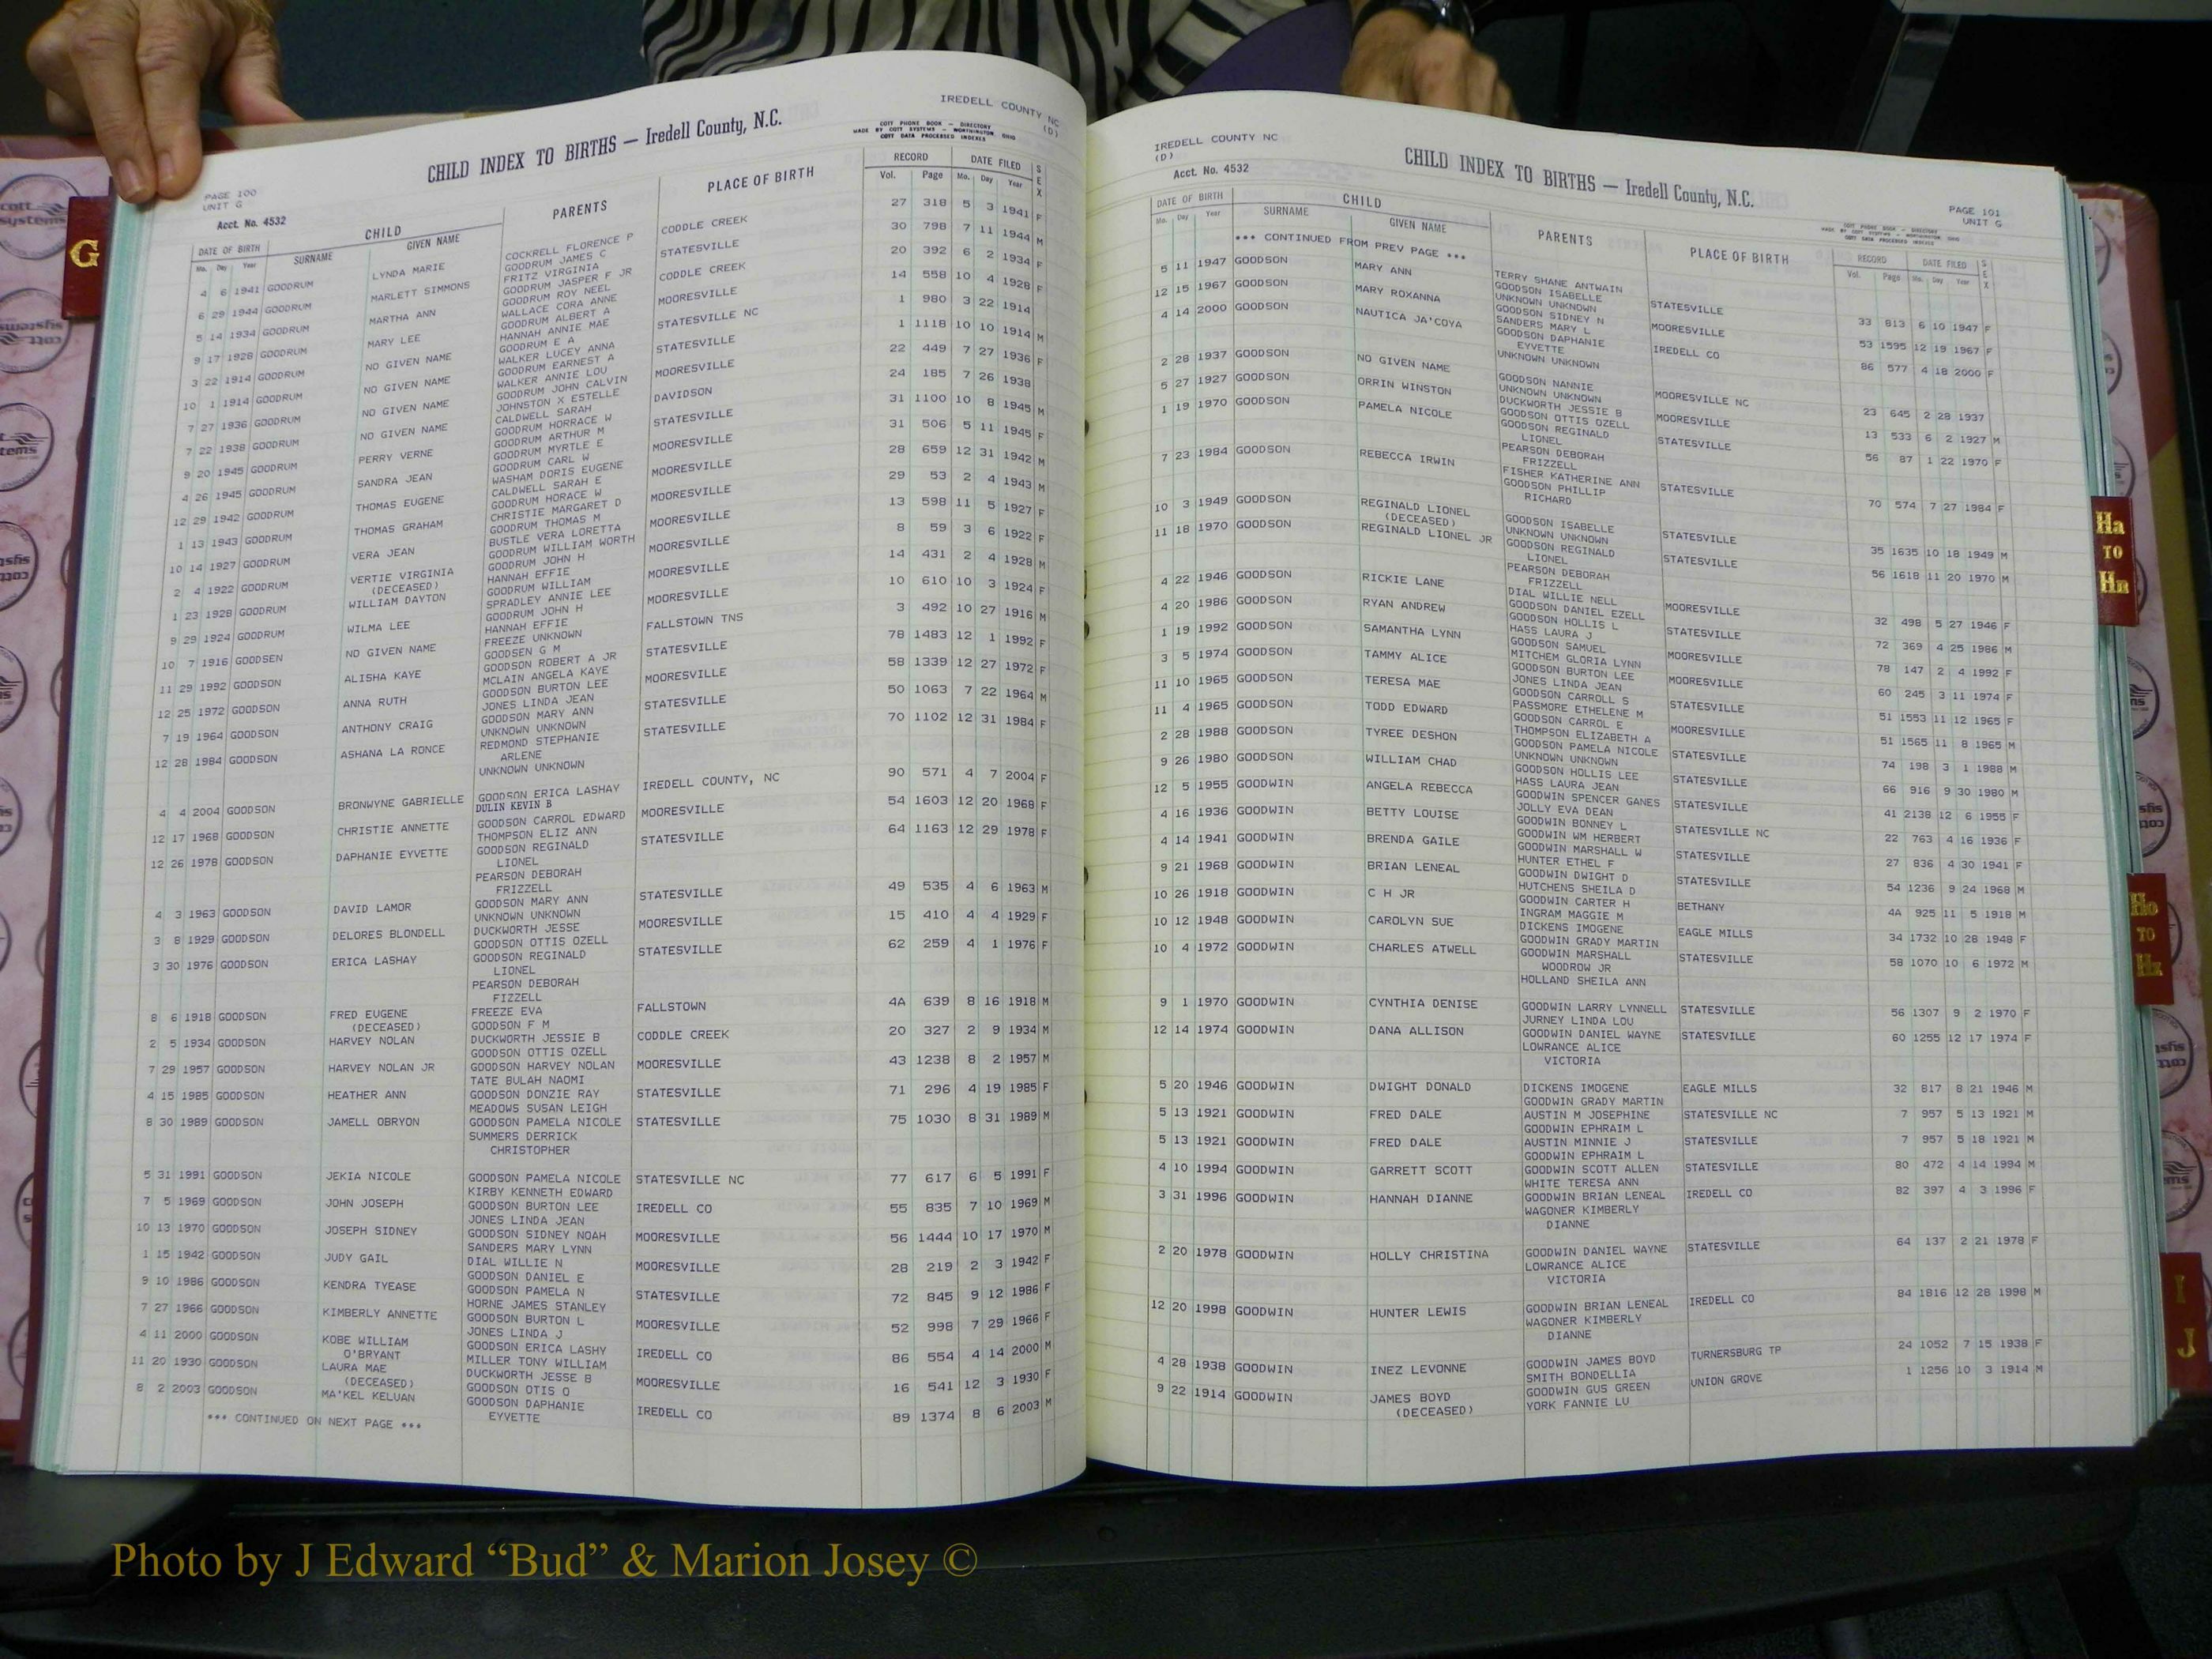 IREDELL COUNTY NC
(D)
CHILD INDEX TO BIRTHS — Iredell County, N.C.
COTT PHONE BOOK — DIRECTORY
MADE BY COTT SYSTEMS — WORTHINGTON, OHIO
COTT DATA PROCESSED INDEXES
PAGE 100
UNIT G
Acct. No. 4532
DATE OF BIRTH CHILD PARENTS PLACE OF BIRTH RECORD DATE FILED SEX
Mo. Day Year SURNAME GIVEN NAME Vol. Page Mo. Day Year
4 6 1941 GOODRUM LYNDA MARIE COCKRELL FLORENCE P CODDLE CREEK 27 318 5 3 1941 F
GOODRUM JAMES C
6 29 1944 GOODRUM MARLETT SIMMONS FRITZ VIRGINIA STATESVILLE 30 798 7 11 1944 M
GOODRUM JASPER F JR
5 14 1934 GOODRUM MARTHA ANN GOODRUM ROY NEEL CODDLE CREEK 20 392 6 2 1934 F
WALLACE CORA ANNE
9 17 1928 GOODRUM MARY LEE GOODRUM ALBERT A MOORESVILLE 14 558 10 4 1928 F
HANNAH ANNIE MAE
3 22 1914 GOODRUM NO GIVEN NAME GOODRUM E A STATESVILLE NC 1 980 3 22 1914
WALKER LUCEY ANNA
10 1 1914 GOODRUM NO GIVEN NAME GOODRUM EARNEST A STATESVILLE 1 1118 10 10 1914 M
WALKER ANNIE LOU
7 27 1936 GOODRUM NO GIVEN NAME GOODRUM JOHN CALVIN MOORESVILLE 22 449 7 27 1936 F
JOHNSTON X ESTELLE
7 22 1938 GOODRUM NO GIVEN NAME CALDWELL SARAH DAVIDSON 24 185 7 26 1938
GOODRUM HORRACE W
9 20 1945 GOODRUM PERRY VERNE GOODRUM ARTHUR M STATESVILLE 31 1100 10 8 1945 M
GOODRUM MYRTLE E
4 26 1945 GOODRUM SANDRA JEAN GOODRUM CARL W MOORESVILLE 31 506 5 11 1945 F
WASHAM DORIS EUGENE
12 29 1942 GOODRUM THOMAS EUGENE CALDWELL SARAH E MOORESVILLE 28 659 12 31 1942 M
GOODRUM HORACE W
1 13 1943 GOODRUM THOMAS GRAHAM CHRISTIE MARGARET D MOORESVILLE 29 53 2 4 1943 M
GOODRUM THOMAS M
10 14 1927 GOODRUM VERA JEAN BUSTLE VERA LORETTA MOORESVILLE 13 598 11 5 1927 F
GOODRUM WILLIAM WORTH
2 4 1922 GOODRUM VERTIE VIRGINIA GOODRUM JOHN H MOORESVILLE 8 59 3 6 1922 F
(DECEASED) HANNAH EFFIE
1 23 1928 GOODRUM WILLIAM DAYTON GOODRUM WILLIAM MOORESVILLE 14 431 2 4 1928 M
SPRADLEY ANNIE LEE
9 29 1924 GOODRUM WILMA LEE GOODRUM JOHN H MOORESVILLE 10 610 10 3 1924 F
HANNAH EFFIE
10 7 1916 GOODSEN NO GIVEN NAME FREEZE UNKNOWN FALLSTOWN TNS 3 492 10 27 1916 M
GOODSEN G M
11 29 1992 GOODSON ALISHA KAYE GOODSON ROBERT A JR STATESVILLE 78 1483 12 1 1992 F
MCLAIN ANGELA KAYE
12 25 1972 GOODSON ANNA RUTH GOODSON BURTON LEE MOORESVILLE 58 1339 12 27 1972 F
JONES LINDA JEAN
7 19 1964 GOODSON ANTHONY CRAIG GOODSON MARY ANN STATESVILLE 50 1063 7 22 1964 M
UNKNOWN UNKNOWN
12 28 1984 GOODSON ASHANA LA RONCE REDMOND STEPHANIE STATESVILLE 70 1102 12 31 1984 F
ARLENE
UNKNOWN UNKNOWN
4 4 2004 GOODSON BRONWYNE GABRIELLE GOODSON ERICA LASHAY IREDELL COUNTY, NC 90 571 4 7 2004 F
DULIN KEVIN B
12 17 1968 GOODSON CHRISTIE ANNETTE GOODSON CARROL EDWARD MOORESVILLE 54 1603 12 20 1968 F
THOMPSON ELIZ ANN
12 26 1978 GOODSON DAPHANIE EYVETTE GOODSON REGINALD STATESVILLE 64 1163 12 29 1978 F
LIONEL
PEARSON DEBORAH
FRIZZELL
4 3 1963 GOODSON DAVID LAMOR GOODSON MARY ANN STATESVILLE 49 535 4 6 1963 M
UNKNOWN UNKNOWN
3 8 1929 GOODSON DELORES BLONDELL DUCKWORTH JESSE MOORESVILLE 15 410 4 4 1929 F
GOODSON OTTIS OZELL
3 30 1976 GOODSON ERICA LASHAY GOODSON REGINALD STATESVILLE 62 259 4 1 1976 F
LIONEL
PEARSON DEBORAH
FIZZELL
8 6 1918 GOODSON FRED EUGENE FREEZE EVA FALLSTOWN 4A 639 8 16 1918 M
(DECEASED) GOODSON F M
2 5 1934 GOODSON HARVEY NOLAN DUCKWORTH JESSIE B CODDLE CREEK 20 327 2 9 1934 M
GOODSON OTTIS OZELL
7 29 1957 GOODSON HARVEY NOLAN JR GOODSON HARVEY NOLAN MOORESVILLE 43 1238 8 2 1957 M
TATE BULAH NAOMI
4 15 1985 GOODSON HEATHER ANN GOODSON DONZIE RAY STATESVILLE 71 296 4 19 1985 F
MEADOWS SUSAN LEIGH
8 30 1989 GOODSON JAMELL OBRYON GOODSON PAMELA NICOLE STATESVILLE 75 1030 8 31 1989 M
SUMMERS DERRICK
CHRISTOPHER
5 31 1991 GOODSON JEKIA NICOLE GOODSON PAMELA NICOLE STATESVILLE NC 77 617 6 5 1991 F
KIRBY KENNETH EDWARD
7 5 1969 GOODSON JOHN JOSEPH GOODSON BURTON LEE IREDELL CO 55 835 7 10 1969 M
JONES LINDA JEAN
10 13 1970 GOODSON JOSEPH SIDNEY GOODSON SIDNEY NOAH MOORESVILLE 56 1444 10 17 1970 M
SANDERS MARY LYNN
1 15 1942 GOODSON JUDY GAIL DIAL WILLIE N MOORESVILLE 28 219 2 3 1942 F
GOODSON DANIEL E
9 10 1986 GOODSON KENDRA TYEASE GOODSON PAMELA N STATESVILLE 72 845 9 12 1986 F
HORNE JAMES STANLEY
7 27 1966 GOODSON KIMBERLY ANNETTE GOODSON BURTON L MOORESVILLE 52 998 7 29 1966 F
JONES LINDA J
4 11 2000 GOODSON KOBE WILLIAM GOODSON ERICA LASHY IREDELL CO 86 554 4 14 2000 M
O'BRYANT MILLER TONY WILLIAM
11 20 1930 GOODSON LAURA MAE DUCKWORTH JESSE B MOORESVILLE 16 541 12 3 1930 F
(DECEASED) GOODSON OTIS O
8 2 2003 GOODSON MA'KEL KELUAN GOODSON DAPHANIE IREDELL CO 89 1374 8 6 2003 M
EYVETTE
*** CONTINUED ON NEXT PAGE ***
IREDELL COUNTY NC
(D)
CHILD INDEX TO BIRTHS — Iredell County, N.C.
Acct. No. 4532
PAGE 101
UNIT G
COTT PHONE BOOK — DIRECTORY
MADE BY COTT SYSTEMS — WORTHINGTON, OHIO
COTT DATA PROCESSED INDEXES
DATE OF BIRTH CHILD PARENTS PLACE OF BIRTH RECORD DATE FILED SEX
Mo. Day Year SURNAME GIVEN NAME Vol. Page Mo. Day Year
*** CONTINUED FROM PREV PAGE ***
TERRY SHANE ANTWAIN
5 11 1947 GOODSON MARY ANN GOODSON ISABELLE STATESVILLE 33 813 6 10 1947 F
UNKNOWN UNKNOWN
12 15 1967 GOODSON MARY ROXANNA GOODSON SIDNEY N MOORESVILLE 53 1595 12 19 1967 F
SANDERS MARY L
4 14 2000 GOODSON NAUTICA JA'COYA GOODSON DAPHANIE IREDELL CO 86 577 4 18 2000 F
EYVETTE
UNKNOWN UNKNOWN
2 28 1937 GOODSON NO GIVEN NAME GOODSON NANNIE MOORESVILLE NC 23 645 2 28 1937
UNKNOWN UNKNOWN
5 27 1927 GOODSON ORRIN WINSTON DUCKWORTH JESSIE B MOORESVILLE 13 533 6 2 1927 M
GOODSON OTTIS OZELL
1 19 1970 GOODSON PAMELA NICOLE GOODSON REGINALD STATESVILLE 56 87 1 22 1970 F
LIONEL
PEARSON DEBORAH
FRIZZELL
7 23 1984 GOODSON REBECCA IRWIN FISHER KATHERINE ANN STATESVILLE 70 574 7 27 1984 F
GOODSON PHILLIP
RICHARD
10 3 1949 GOODSON REGINALD LIONEL GOODSON ISABELLE STATESVILLE 35 1635 10 18 1949 M
(DECEASED) UNKNOWN UNKNOWN
11 18 1970 GOODSON REGINALD LIONEL JR GOODSON REGINALD STATESVILLE 56 1618 11 20 1970 M
LIONEL
PEARSON DEBORAH
FRIZZELL
4 22 1946 GOODSON RICKIE LANE DIAL WILLIE NELL MOORESVILLE 32 498 5 27 1946 F
GOODSON DANIEL EZELL
4 20 1986 GOODSON RYAN ANDREW GOODSON HOLLIS L STATESVILLE 72 369 4 25 1986 M
HASS LAURA J
1 19 1992 GOODSON SAMANTHA LYNN GOODSON SAMUEL MOORESVILLE 78 147 2 4 1992 F
MITCHEM GLORIA LYNN
3 5 1974 GOODSON TAMMY ALICE GOODSON BURTON LEE MOORESVILLE 60 245 3 11 1974 F
JONES LINDA JEAN
11 10 1965 GOODSON TERESA MAE GOODSON CARROLL S STATESVILLE 51 1553 11 12 1965 F
PASSMORE ETHELENE M
11 4 1965 GOODSON TODD EDWARD GOODSON CARROL E MOORESVILLE 51 1565 11 8 1965 M
THOMPSON ELIZABETH A
2 28 1988 GOODSON TYREE DESHON GOODSON PAMELA NICOLE STATESVILLE 74 198 3 1 1988 M
UNKNOWN UNKNOWN
9 26 1980 GOODSON WILLIAM CHAD GOODSON HOLLIS LEE STATESVILLE 66 916 9 30 1980 M
HASS LAURA JEAN
12 5 1955 GOODWIN ANGELA REBECCA GOODWIN SPENCER GANES STATESVILLE 41 2138 12 6 1955 F
JOLLY EVA DEAN
4 16 1936 GOODWIN BETTY LOUISE GOODWIN BONNEY L STATESVILLE NC 22 763 4 16 1936 F
GOODWIN WM HERBERT
4 14 1941 GOODWIN BRENDA GAILE GOODWIN MARSHALL W STATESVILLE 27 836 4 30 1941 F
HUNTER ETHEL F
9 21 1968 GOODWIN BRIAN LENEAL GOODWIN DWIGHT D STATESVILLE 54 1236 9 24 1968 M
HUTCHENS SHEILA D
10 26 1918 GOODWIN C H JR GOODWIN CARTER H BETHANY 4A 925 11 5 1918 M
INGRAM MAGGIE M
10 12 1948 GOODWIN CAROLYN SUE DICKENS IMOGENE EAGLE MILLS 34 1732 10 28 1948 F
GOODWIN GRADY MARTIN
10 4 1972 GOODWIN CHARLES ATWELL GOODWIN MARSHALL STATESVILLE 58 1070 10 6 1972 M
WOODROW JR
HOLLAND SHEILA ANN
9 1 1970 GOODWIN CYNTHIA DENISE GOODWIN LARRY LYNNELL STATESVILLE 56 1307 9 2 1970 F
JURNEY LINDA LOU
12 14 1974 GOODWIN DANA ALLISON GOODWIN DANIEL WAYNE STATESVILLE 60 1255 12 17 1974 F
LOWRANCE ALICE
VICTORIA
5 20 1946 GOODWIN DWIGHT DONALD DICKENS IMOGENE EAGLE MILLS 32 817 8 21 1946 M
GOODWIN GRADY MARTIN
5 13 1921 GOODWIN FRED DALE AUSTIN M JOSEPHINE STATESVILLE NC 7 957 5 13 1921 M
GOODWIN EPHRAIM L
5 13 1921 GOODWIN FRED DALE AUSTIN MINNIE J STATESVILLE 7 957 5 18 1921 M
GOODWIN EPHRAIM L
4 10 1994 GOODWIN GARRETT SCOTT GOODWIN SCOTT ALLEN STATESVILLE 80 472 4 14 1994 M
WHITE TERESA ANN
3 31 1996 GOODWIN HANNAH DIANNE GOODWIN BRIAN LENEAL IREDELL CO 82 397 4 3 1996 F
WAGONER KIMBERLY
DIANNE
2 20 1978 GOODWIN HOLLY CHRISTINA GOODWIN DANIEL WAYNE STATESVILLE 64 137 2 21 1978 F
LOWRANCE ALICE
VICTORIA
12 20 1998 GOODWIN HUNTER LEWIS GOODWIN BRIAN LENEAL IREDELL CO 84 1816 12 28 1998 M
WAGONER KIMBERLY
DIANNE
4 28 1938 GOODWIN INEZ LEVONNE GOODWIN JAMES BOYD TURNERSBURG TP 24 1052 7 15 1938 F
SMITH BONDELLIA
9 22 1914 GOODWIN JAMES BOYD GOODWIN GUS GREEN UNION GROVE 1 1256 10 3 1914 M
(DECEASED) YORK FANNIE LU
G
Ha
TO
Hn
Ho
TO
Hz
I
J
cott
systems
Photo by J Edward “Bud” & Marion Josey ©